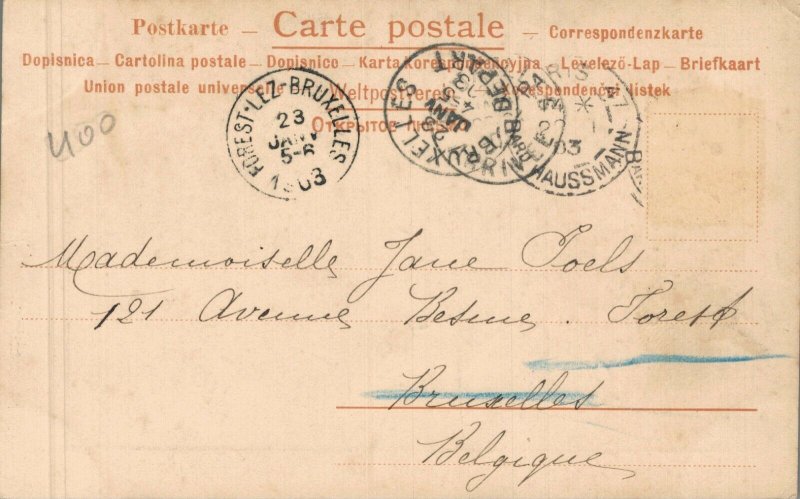 Postkarte — Carte postale — Correspondenzkarte
Dopisnica — Cartolina postale — Dopisnico — Karta Korespondencyjna — Levelező-Lap — Briefkaart
Union postale universelle Weltpostverein Korespondenční lístek
Открытое
FOREST-LEZ-BRUXELLES
23
JANV
5-6
1903
BRUXELLES
DEPART
JANV
PARIS 47
BARD HAUSSMANN
400
Mademoiselle Jane Poels
121 Avenue Besme. Forest
Bruxelles
Belgique